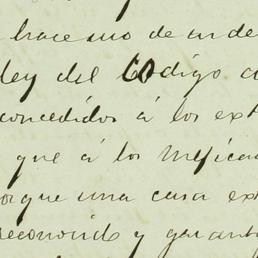 hace uso de su de
ley del Código c
concedidos á los ext
que á los Mexica
orque una casa ext
reconoció y garant